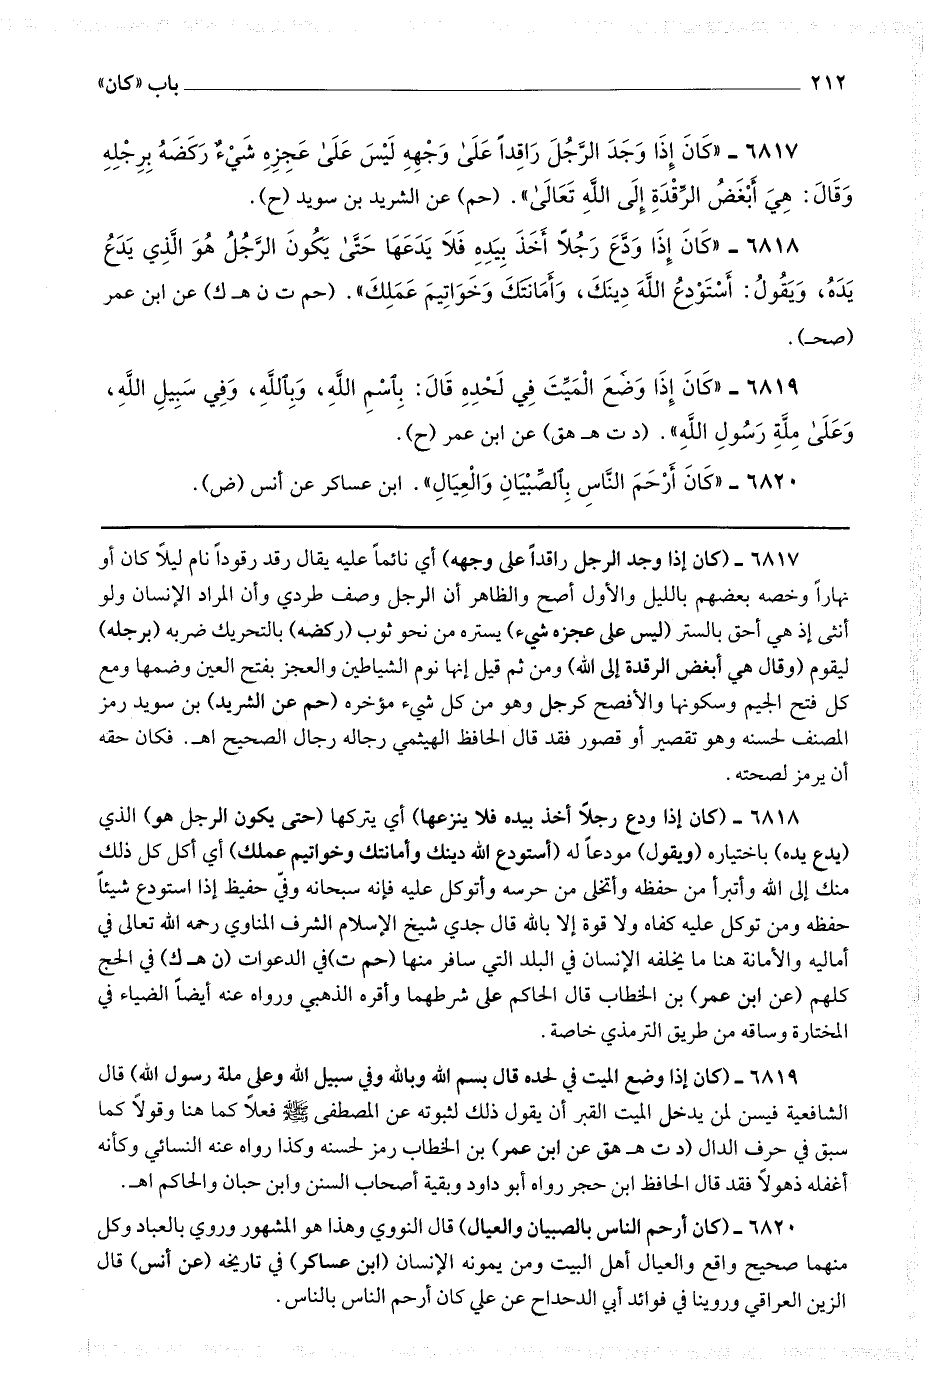 ٢١٢ باب «كان»
٦٨١٧ ـ «كَانَ إِذَا وَجَدَ الرَّجُلَ رَاقِداً عَلَىٰ وَجْهِهِ لَيْسَ عَلَىٰ عَجِزِهِ شَيْءٌ رَكَضَهُ بِرِجْلِهِ
وَقَالَ: هِيَ أَبْغَضُ الرِّقْدَةِ إِلَى اللَّهِ تَعَالَىٰ». (حم) عن الشريد بن سويد (ح).
٦٨١٨ ـ «كَانَ إِذَا وَدَّعَ رَجُلاً أَخَذَ بِيَدِهِ فَلَا يَدَعَهَا حَتَّىٰ يَكُونَ الرَّجُلُ هُوَ الَّذِي يَدَعُ
يَدَهُ، وَيَقُولُ: أَسْتَوْدِعُ اللَّهَ دِينَكَ، وَأَمَانَتَكَ وَخَوَاتِيمَ عَمَلِكَ». (حم ت ن هـ ك) عن ابن عمر
(صحـ).
٦٨١٩ ـ «كَانَ إِذَا وَضَعَ الْمَيِّتَ فِي لَحْدِهِ قَالَ: بِٱسْمِ اللَّهِ، وَبِٱللَّهِ، وَفِي سَبِيلِ اللَّهِ،
وَعَلَىٰ مِلَّةِ رَسُولِ اللَّهِ». (د ت هـ هق) عن ابن عمر (ح).
٦٨٢٠ ـ «كَانَ أَرْحَمَ النَّاسِ بِٱلصِّبْيَانِ وَالْعِيَالِ». ابن عساكر عن أنس (ض).
٦٨١٧ ـ (كان إذا وجد الرجل راقداً على وجهه) أي نائماً عليه يقال رقد رقوداً نام ليلاً كان أو
نهاراً وخصه بعضهم بالليل والأول أصح والظاهر أن الرجل وصف طردي وأن المراد الإنسان ولو
أنثى إذ هي أحق بالستر (ليس على عجزه شيء) يستره من نحو ثوب (ركضه) بالتحريك ضربه (برجله)
ليقوم (وقال هي أبغض الرقدة إلى الله) ومن ثم قيل إنها نوم الشياطين والعجز بفتح العين وضمها ومع
كل فتح الجيم وسكونها والأفصح كرجل وهو من كل شيء مؤخره (حم عن الشريد) بن سويد رمز
المصنف لحسنه وهو تقصير أو قصور فقد قال الحافظ الهيثمي رجاله رجال الصحيح اهـ. فكان حقه
أن يرمز لصحته.
٦٨١٨ ـ (كان إذا ودع رجلاً أخذ بيده فلا ينزعها) أي يتركها (حتى يكون الرجل هو) الذي
(يدع يده) باختياره (ويقول) مودعاً له (أستودع الله دينك وأمانتك وخواتيم عملك) أي أكل كل ذلك
منك إلى الله وأتبرأ من حفظه وأتخلى من حرسه وأتوكل عليه فإنه سبحانه وفيّ حفيظ إذا استودع شيئاً
حفظه ومن توكل عليه كفاه ولا قوة إلا بالله قال جدي شيخ الإسلام الشرف المناوي رحمه الله تعالى في
أماليه والأمانة هنا ما يخلفه الإنسان في البلد التي سافر منها (حم ت)في الدعوات (ن هـ ك) في الحج
كلهم (عن ابن عمر) بن الخطاب قال الحاكم على شرطهما وأقره الذهبي ورواه عنه أيضاً الضياء في
المختارة وساقه من طريق الترمذي خاصة.
٦٨١٩ ـ (كان إذا وضع الميت في لحده قال بسم الله وبالله وفي سبيل الله وعلى ملة رسول الله) قال
الشافعية فيسن لمن يدخل الميت القبر أن يقول ذلك لثبوته عن المصطفى ﷺ فعلاً كما هنا وقولاً كما
سبق في حرف الدال (د ت هـ هق عن ابن عمر) بن الخطاب رمز لحسنه وكذا رواه عنه النسائي وكأنه
أغفله ذهولاً فقد قال الحافظ ابن حجر رواه أبو داود وبقية أصحاب السنن وابن حبان والحاكم اهـ.
٦٨٢٠ ـ (كان أرحم الناس بالصبيان والعيال) قال النووي وهذا هو المشهور وروي بالعباد وكل
منهما صحيح واقع والعيال أهل البيت ومن يمونه الإنسان (ابن عساكر) في تاريخه (عن أنس) قال
الزين العراقي وروينا في فوائد أبي الدحداح عن علي كان أرحم الناس بالناس.